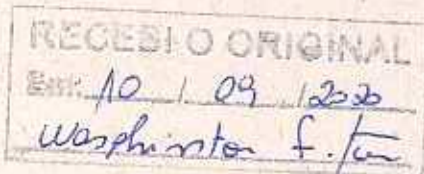 RECEBI O ORIGINAL
Em: 10 / 09 / 2020
Washinton F.